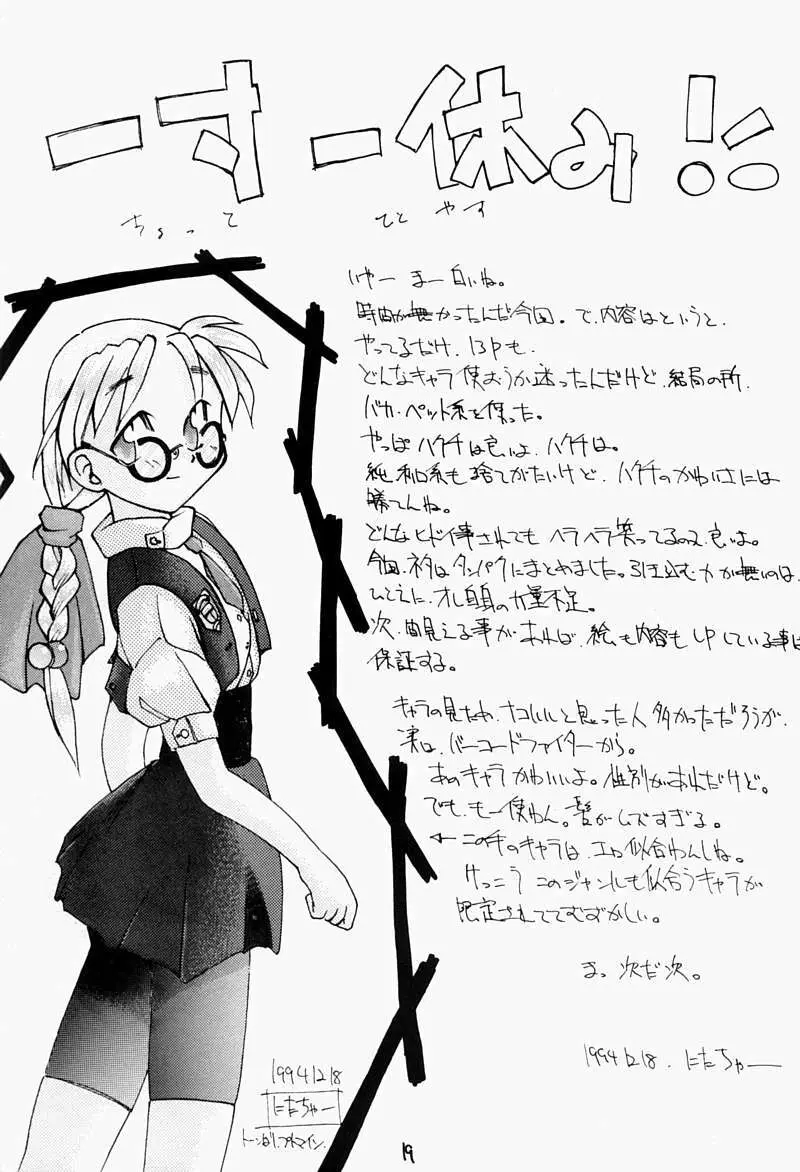 一寸一休み!!
ちょっと ひとやす
いやー まー白いね。
時間が無かったんだ今回。で、内容はというと、
やってるだけ、13Pも、
どんなキャラ使おうか迷ったんだけど、結局の所、
バカ・ペット系を使った。
やっぱハクチは良いよ、ハクチは。
純和系も捨てがたいけど、ハクチのかわいさには
勝てんね。
どんなヒドイ事されてもヘラヘラ笑ってるの、良いよ。
今回、ネタはタンパクにまとめました。引き込む力が無いのは、
ひとえに、オレ自身の力量不足。
次、見える事があれば、絵も内容もUPしている事は
保証する。
キャラの見ため、ナコいいと思った人多かっただろうが、
実は、バーコードファイターから。
あのキャラかわいいよ。性別があれだけど。
でも、もー使わん。髪がムズすぎる。
← この手のキャラは、エロ似合わんしね。
けっこうこのジャンルも似合うキャラが
限定されててむずかしい。
まっ 次だ次。
1994.12.18. にたちゃー
1994.12.18
にたちゃー
19